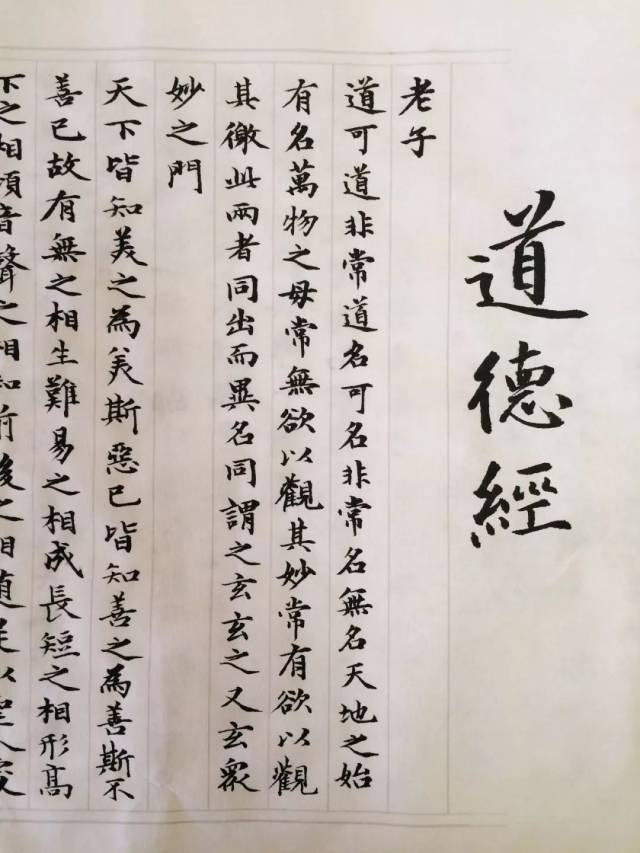 道德經
老子
道可道非常道名可名非常名無名天地之始
有名萬物之母常無欲以觀其妙常有欲以觀
其徼此兩者同出而異名同謂之玄玄之又玄眾
妙之門
天下皆知美之為美斯惡已皆知善之為善斯不
善已故有無之相生難易之相成長短之相形高
下之相傾音聲之相和前後之相隨是以聖人處